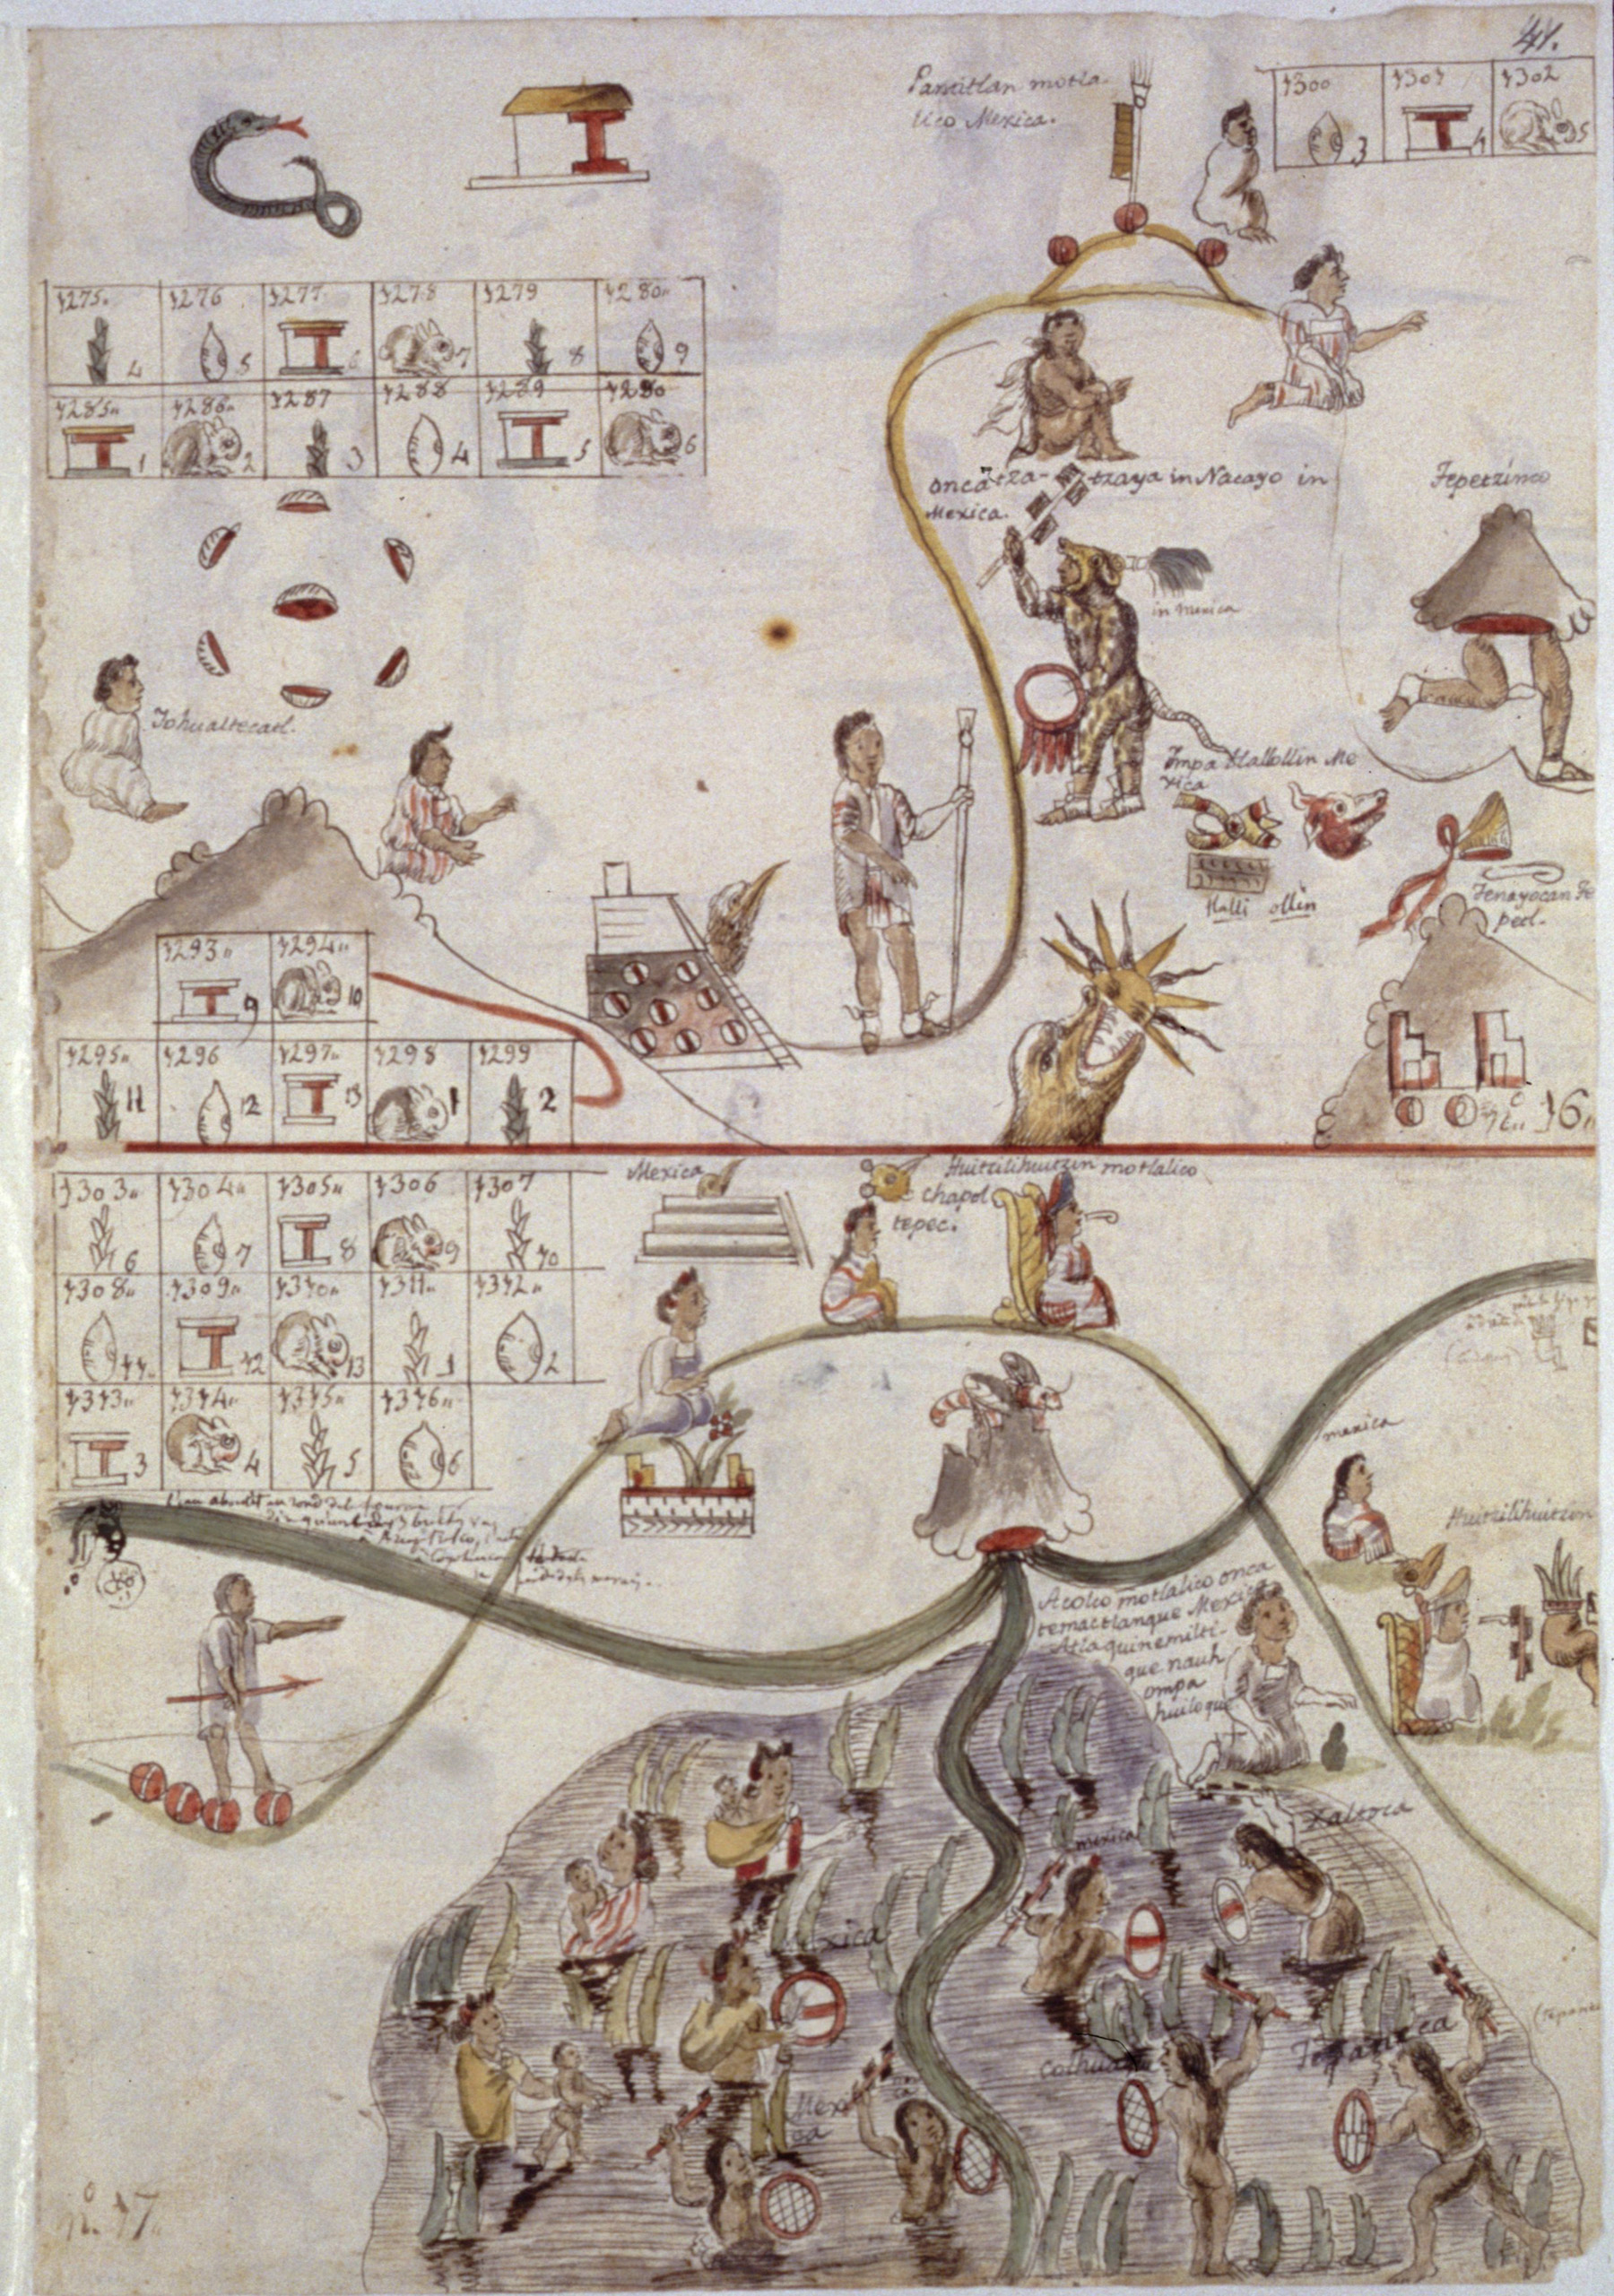 41.
Pantitlan motla-
lico Mexica.
1300 1301 1302
3 4 5
1275. 1276 1277 1278 1279 1280
4 5 6 7 8 9
1285 1286 1287 1288 1289 1290
1 2 3 4 5 6
oncã tza- tzaya in Nacayo in
Mexica.
Tepetzinco
in mexica
Tohualtecatl.
Impa tlallollin Me
xica
tlalli ollin
Tenayocan Te
petl.
1293 1294
9 10
1295 1296 1297 1298 1299
11 12 13 1 2
16
1303 1304 1305 1306 1307
6 7 8 9 10
1308 1309 1310 1311 1312
11 12 13 1 2
1313 1314 1315 1316
3 4 5 6
Mexica
Huitzilihuitzin motlalico
chapol
tepec.
mexica
Huitzilihuitzin
Acolco motlalico onca
temactlanque Mexica
Atla quinemilti-
que nauh
ompa
huiloque
xaltoca
mexica
Mexica
colhuaca
Tepaneca
Mexi
ca
nº. 17